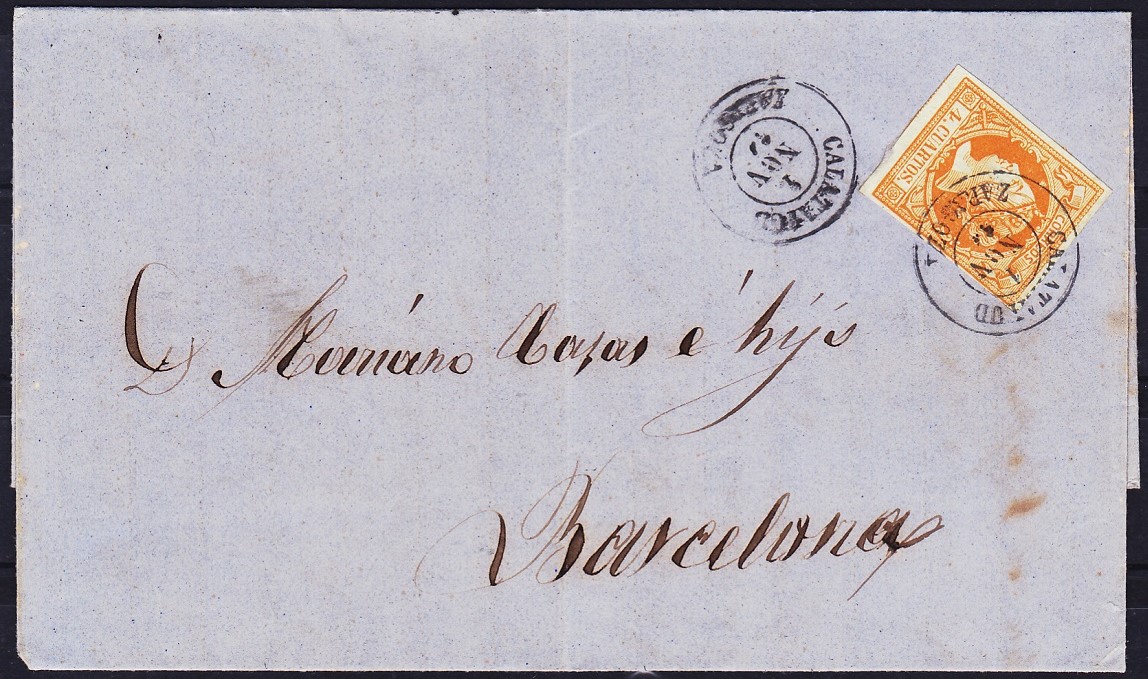 ZARAGOZA
CALATAYUD
1
NOV
4. CUARTOS
ZARAGOZA
CALATAYUD
1
NOV
D. Mariano Casas é hijo
Barcelona